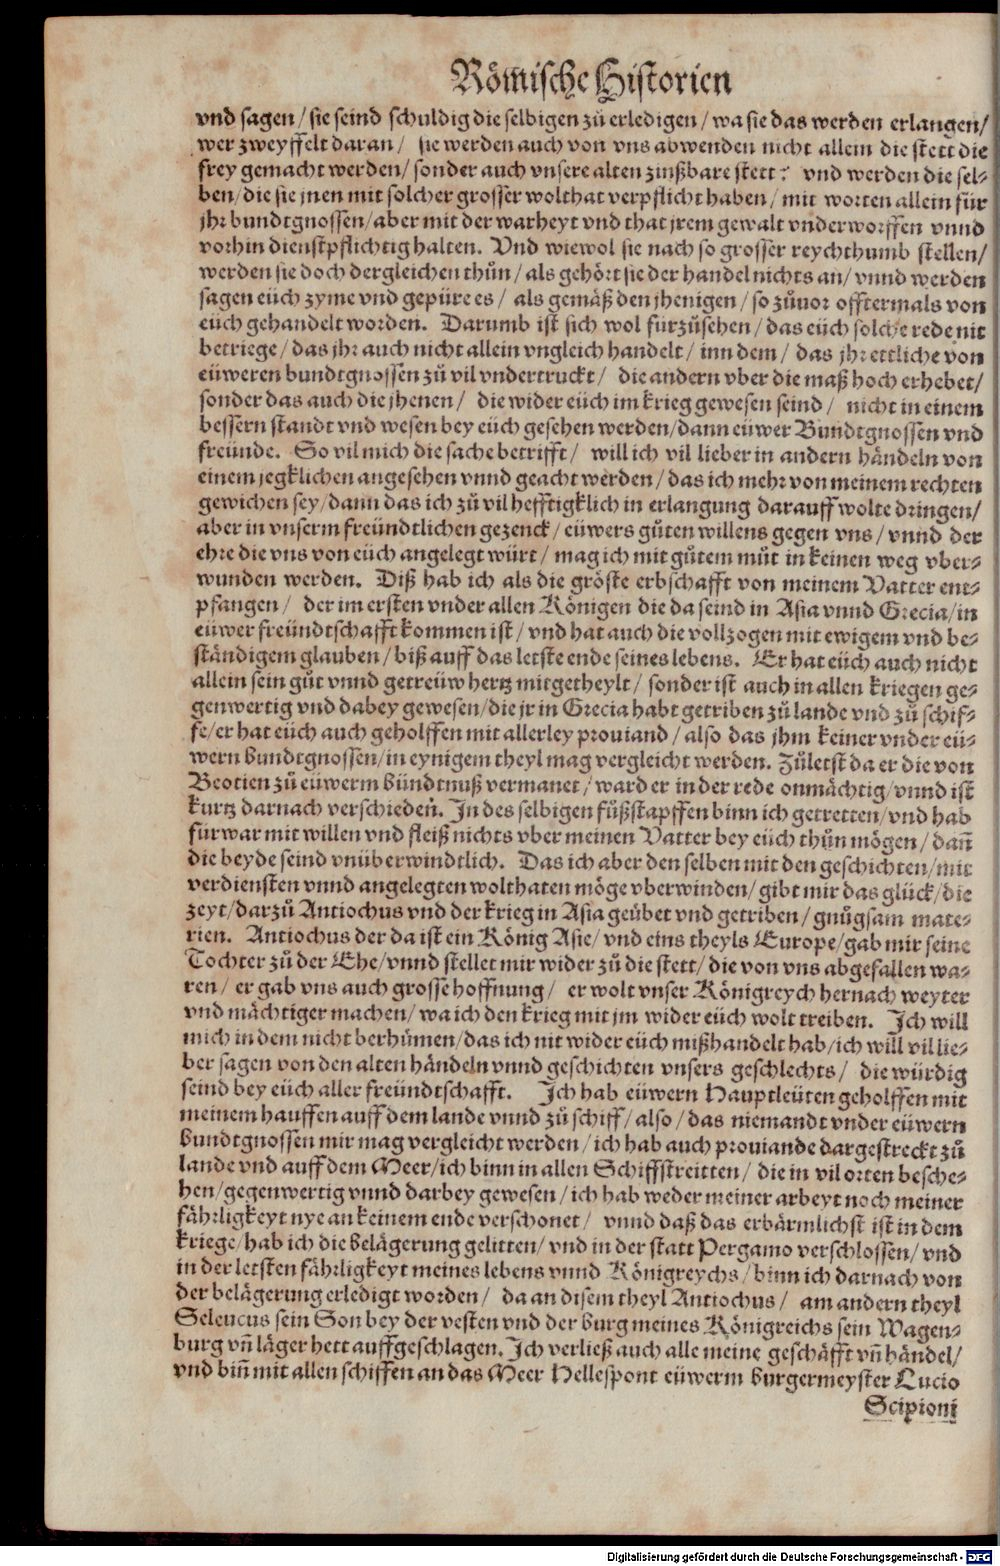 Römische Historien
vnd sagen / sie seind schuldig die selbigen zů erledigen / wa sie das werden erlangen /
wer zweyffelt daran / sie werden auch von vns abwenden nicht allein die stett die
frey gemacht werden / sonder auch vnsere alten zinßbare stett: vnd werden die sel-
ben / die sie jnen mit solcher grosser wolthat verpflicht haben / mit worten allein für
jhr bundtgnossen / aber mit der warheyt vnd that jrem gewalt vnderworffen vnnd
vorhin dienstpflichtig halten. Vnd wiewol sie nach so grosser reychthumb stellen /
werden sie doch dergleichen thůn / als gehört sie der handel nichts an / vnnd werden
sagen eüch zyme vnd gepüre es / als gemäß den jhenigen / so zůuor offtermals von
eüch gehandelt worden. Darumb ist sich wol fürzůsehen / das eüch solche rede nit
betriege / das jhr auch nicht allein vngleich handelt / inn dem / das jhr ettliche von
eüweren bundtgnossen zů vil vndertruckt / die andern vber die maß hoch erhebet /
sonder das auch die jhenen / die wider eüch im krieg gewesen seind / nicht in einem
bessern standt vnd wesen bey eüch gesehen werden / dann eüwer Bundtgnossen vnd
freünde. So vil mich die sache betrifft / will ich vil lieber in andern händeln von
einem jegklichen angesehen vnnd geacht werden / das ich mehr von meinem rechten
gewichen sey / dann das ich zů vil hefftigklich in erlangung darauff wolte dringen /
aber in vnserm freündtlichen gezenck / eüwers gůten willens gegen vns / vnnd der
ehre die vns von eüch angelegt würt / mag ich mit gůtem můt in keinen weg vber-
wunden werden. Diß hab ich als die gröste erbschafft von meinem Vatter ent-
pfangen / der im ersten vnder allen Königen die da seind in Asia vnnd Grecia / in
eüwer freündtschafft kommen ist / vnd hat auch die vollzogen mit ewigem vnd be-
ständigem glauben / biß auff das letste ende seines lebens. Er hat eüch auch nicht
allein sein gůt vnnd getreüw hertz mitgetheylt / sonder ist auch in allen kriegen ge-
genwertig vnd dabey gewesen / die jr in Grecia habt getriben zů lande vnd zů schif-
fe / er hat eüch auch geholffen mit allerley prouiand / also das jhm keiner vnder eü-
wern bundtgnossen / in eynigem theyl mag vergleicht werden. Zůletst da er die von
Beotien zů eüwerm bündtnuß vermanet / ward er in der rede onmächtig / vnnd ist
kurtz darnach verschieden. In des selbigen fůßstapffen binn ich getretten / vnd hab
fürwar mit willen vnd fleiß nichts vber meinen Vatter bey eüch thůn mögen / dañ
die beyde seind vnüberwindtlich. Das ich aber den selben mit den geschichten / mit
verdiensten vnnd angelegten wolthaten möge vberwinden / gibt mir das glück / die
zeyt / darzů Antiochus vnd der krieg in Asia geübet vnd getriben / gnůgsam mate-
rien. Antiochus der da ist ein König Asie / vnd eins theyls Europe / gab mir seine
Tochter zů der Ehe / vnnd stellet mir wider zů die stett / die von vns abgefallen wa-
ren / er gab vns auch grosse hoffnung / er wolt vnser Königreych hernach weyter
vnd mächtiger machen / wa ich den krieg mit jm wider eüch wolt treiben. Ich will
mich in dem nicht berhümen / das ich nit wider eüch mißhandelt hab / ich will vil lie-
ber sagen von den alten händeln vnnd geschichten vnsers geschlechts / die würdig
seind bey eüch aller freündtschafft. Ich hab eüwern Hauptleüten geholffen mit
meinem hauffen auff dem lande vnnd zů schiff / also / das niemandt vnder eüwern
bundtgnossen mir mag vergleicht werden / ich hab auch prouiande dargestreckt zů
lande vnd auff dem Meer / ich binn in allen Schiffstreitten / die in vil orten besche-
hen / gegenwertig vnnd darbey gewesen / ich hab weder meiner arbeyt noch meiner
fährligkeyt nye an keinem ende verschonet / vnnd daß das erbärmlichst ist in dem
kriege / hab ich die belägerung gelitten / vnd in der statt Pergamo verschlossen / vnd
in der letsten fährligkeyt meines lebens vnnd Königreychs / binn ich darnach von
der belägerung erledigt worden / da an disem theyl Antiochus / am andern theyl
Seleucus sein Son bey der vesten vnd der burg meines Königreichs sein Wagen-
burg vñ läger hett auffgeschlagen. Ich verließ auch alle meine geschäfft vñ händel /
vnd biñ mit allen schiffen an das Meer Hellespont eüwerm burgermeyster Lucio
Scipioni
Digitalisierung gefördert durch die Deutsche Forschungsgemeinschaft - DFG